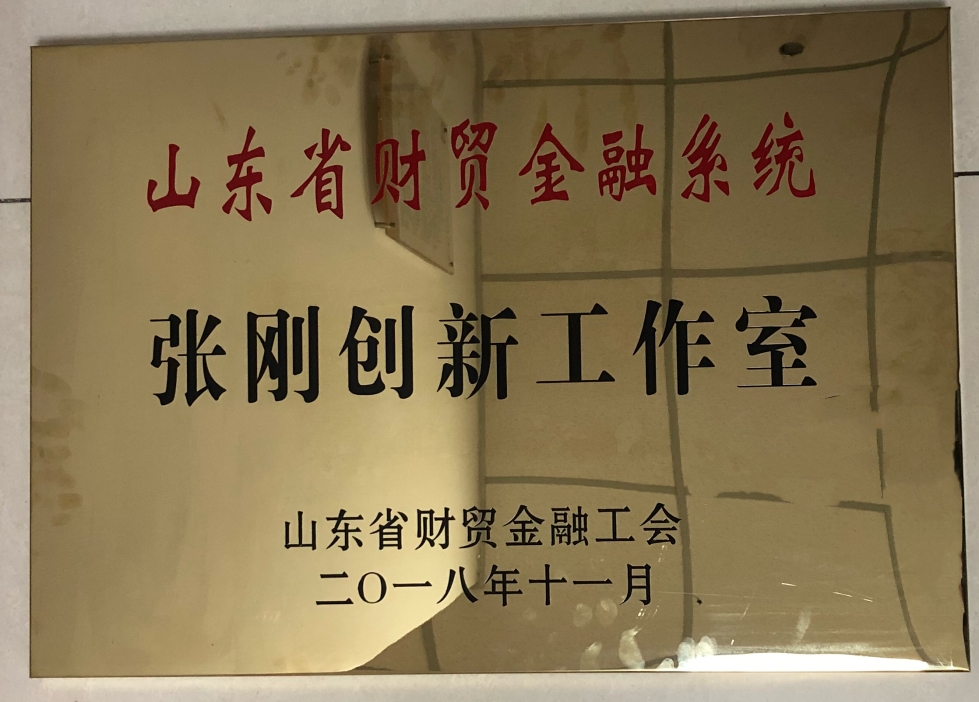 山东省财贸金融系统
张刚创新工作室
山东省财贸金融工会
二〇一八年十一月